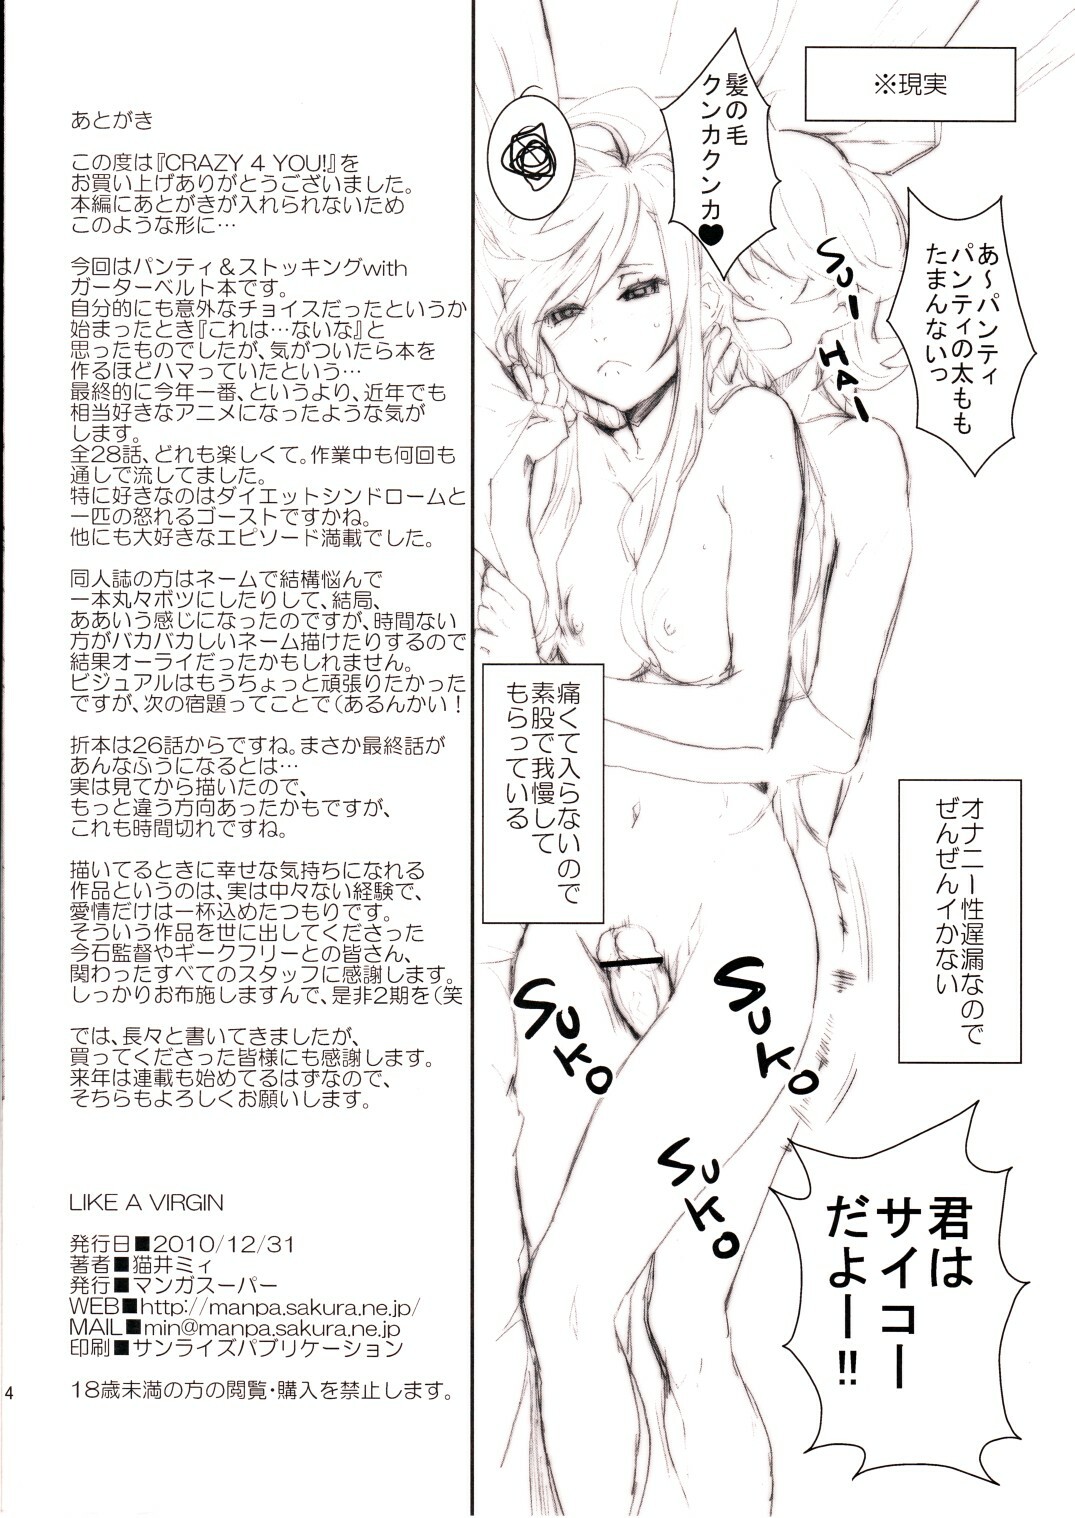 あとがき
この度は『CRAZY 4 YOU!』を
お買い上げありがとうございました。
本編にあとがきが入れられないため
このような形に…
今回はパンティ＆ストッキングwith
ガーターベルト本です。
自分的にも意外なチョイスだったというか
始まったとき『これは…ないな』と
思ったものでしたが、気がついたら本を
作るほどハマっていたという…
最終的に今年一番、というより、近年でも
相当好きなアニメになったような気が
します。
全28話、どれも楽しくて。作業中も何回も
通しで流してました。
特に好きなのはダイエットシンドロームと
一匹の怒れるゴーストですかね。
他にも大好きなエピソード満載でした。
同人誌の方はネームで結構悩んで
一本丸々ボツにしたりして、結局、
ああいう感じになったのですが、時間ない
方がバカバカしいネーム描けたりするので
結果オーライだったかもしれません。
ビジュアルはもうちょっと頑張りたかった
ですが、次の宿題ってことで（あるんかい！
折本は26話からですね。まさか最終話が
あんなふうになるとは…
実は見てから描いたので、
もっと違う方向あったかもですが、
これも時間切れですね。
描いてるときに幸せな気持ちになれる
作品というのは、実は中々ない経験で、
愛情だけは一杯込めたつもりです。
そういう作品を世に出してくださった
今石監督やギークフリーとの皆さん、
関わったすべてのスタッフに感謝します。
しっかりお布施しますんで、是非2期を（笑
では、長々と書いてきましたが、
買ってくださった皆様にも感謝します。
来年は連載も始めてるはずなので、
そちらもよろしくお願いします。
LIKE A VIRGIN
発行日■2010/12/31
著者■猫井ミィ
発行■マンガスーパー
WEB■http://manpa.sakura.ne.jp/
MAIL■min@manpa.sakura.ne.jp
印刷■サンライズパブリケーション
18歳未満の方の閲覧・購入を禁止します。
4
※現実
髪の毛
クンカクンカ♥
あ～パンティ
パンティの太もも
たまんないっ
SUI
TAI
痛くて入らないので
素股で我慢して
もらっている
オナニー性遅漏なので
ぜんぜんイかない
SUKO
SUKO
SUKO
君は
サイコー
だよー!!